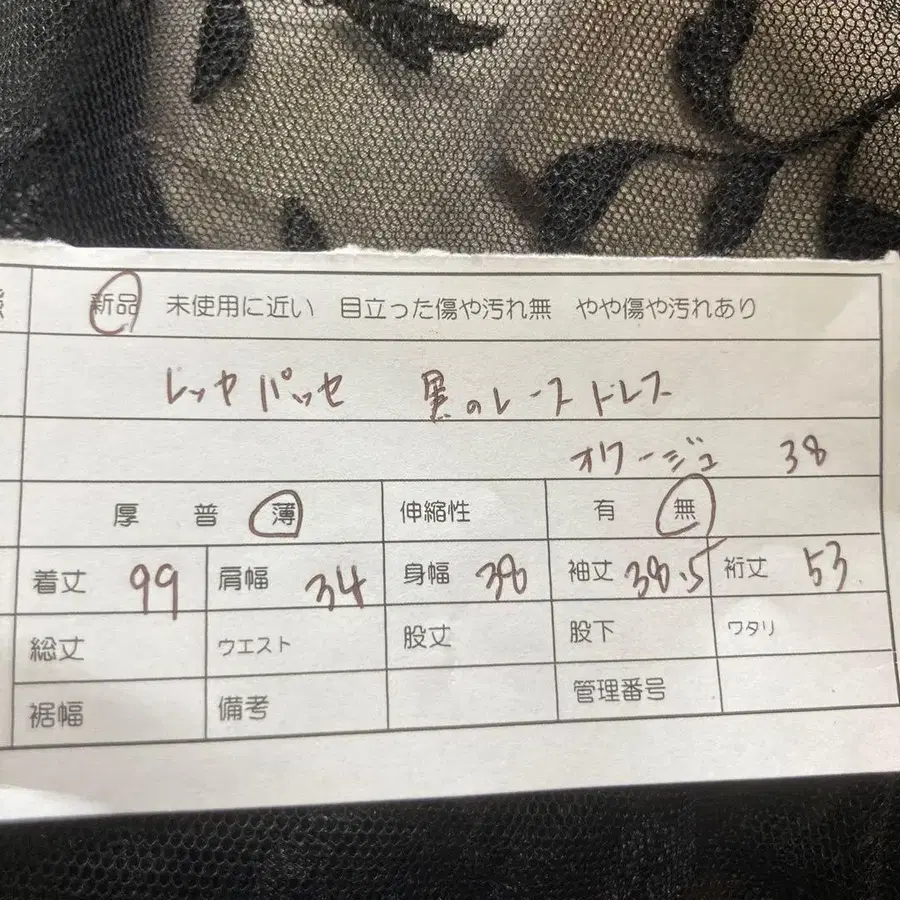 新品 未使用に近い 目立った傷や汚れ無 やや傷や汚れあり
レッセパッセ 黒のレースドレス
オワージュ 38
厚 普 薄 伸縮性 有 無
着丈 99 肩幅 34 身幅 38 袖丈 38.5 裄丈 53
総丈 ウエスト 股丈 股下 ワタリ
裾幅 備考 管理番号